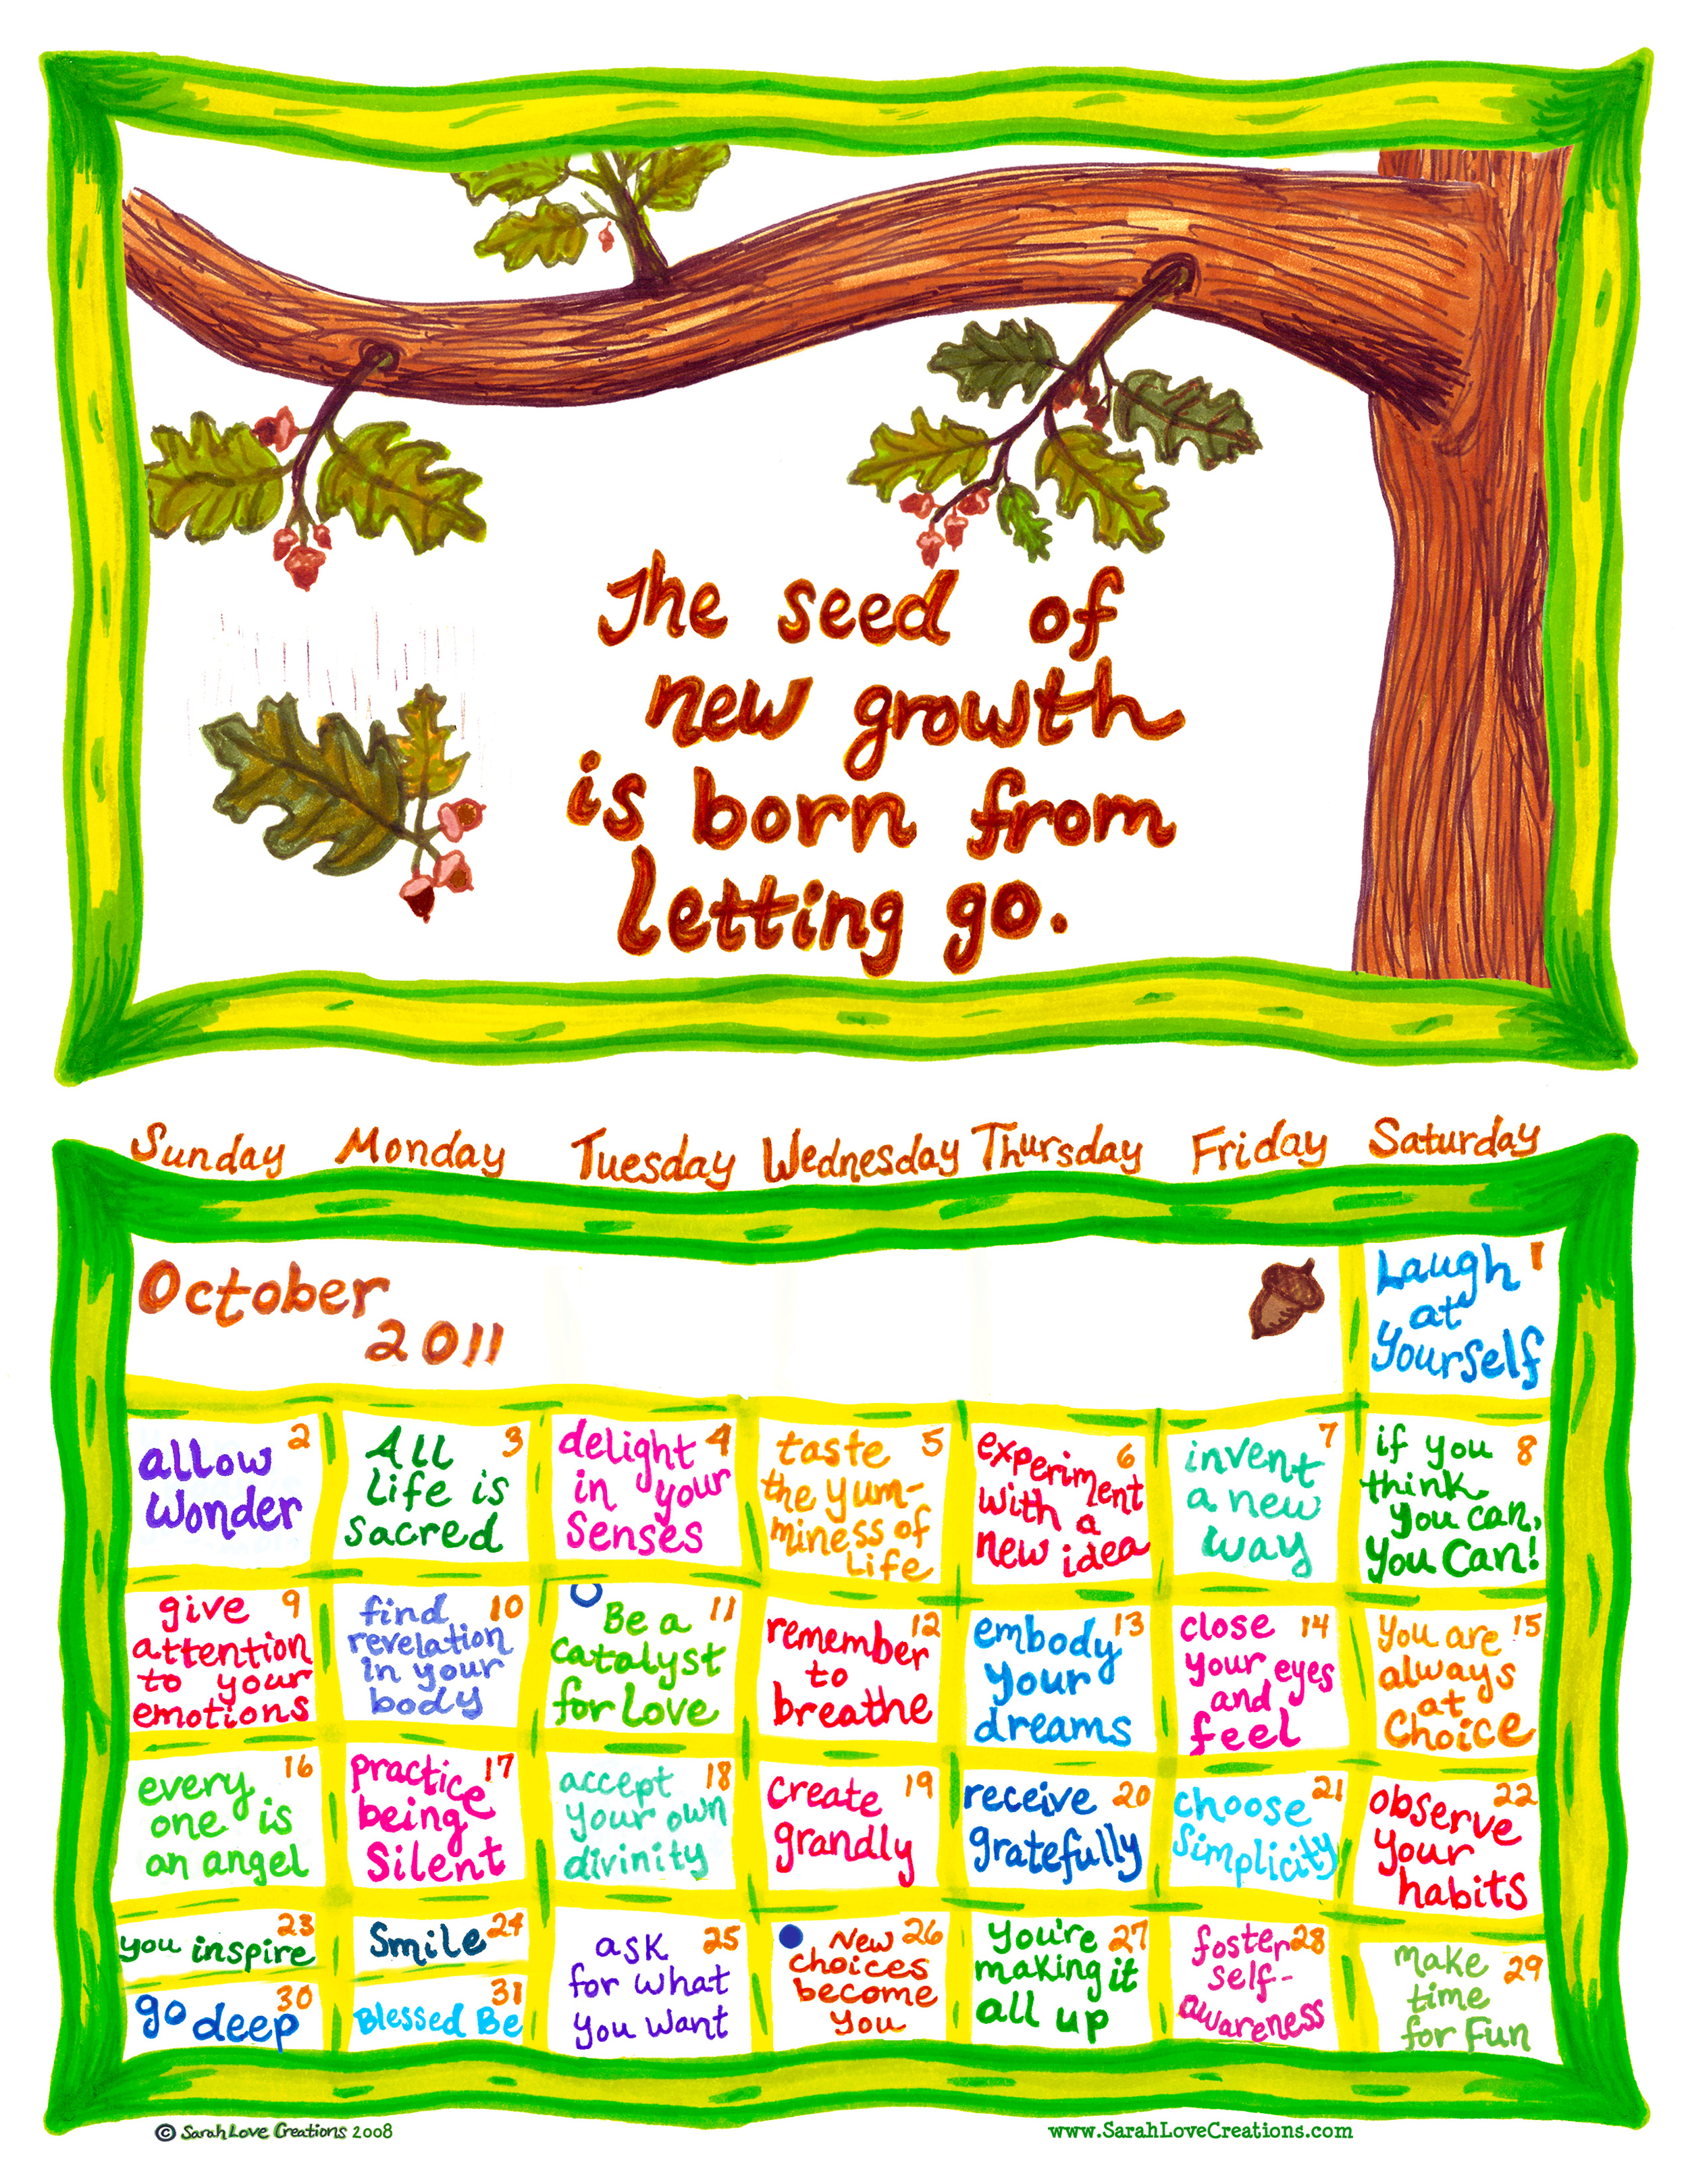 The seed of
new growth
is born from
letting go.
Sunday Monday Tuesday Wednesday Thursday Friday Saturday
October
2011
Laugh 1
at
Yourself
allow 2
Wonder
All 3
Life is
sacred
delight 4
in your
Senses
taste 5
the yum-
miness of
Life
experiment 6
with a
new idea
invent 7
a new
way
if you 8
think
you can,
You Can!
give 9
attention
to your
emotions
find 10
revelation
in your
body
Be a 11
catalyst
for Love
remember 12
to
breathe
embody 13
your
dreams
close 14
your eyes
and
feel
You are 15
always
at
Choice
every 16
one is
an angel
practice 17
being
Silent
accept 18
your own
divinity
create 19
grandly
receive 20
gratefully
choose 21
Simplicity
observe 22
your
habits
you inspire 23
Smile 24
ask 25
for what
you want
New 26
choices
become
You
You're 27
making it
all up
foster 28
self-
awareness
make 29
time
for Fun
go deep 30
Blessed Be 31
© Sarah Love Creations 2008
www.SarahLoveCreations.com